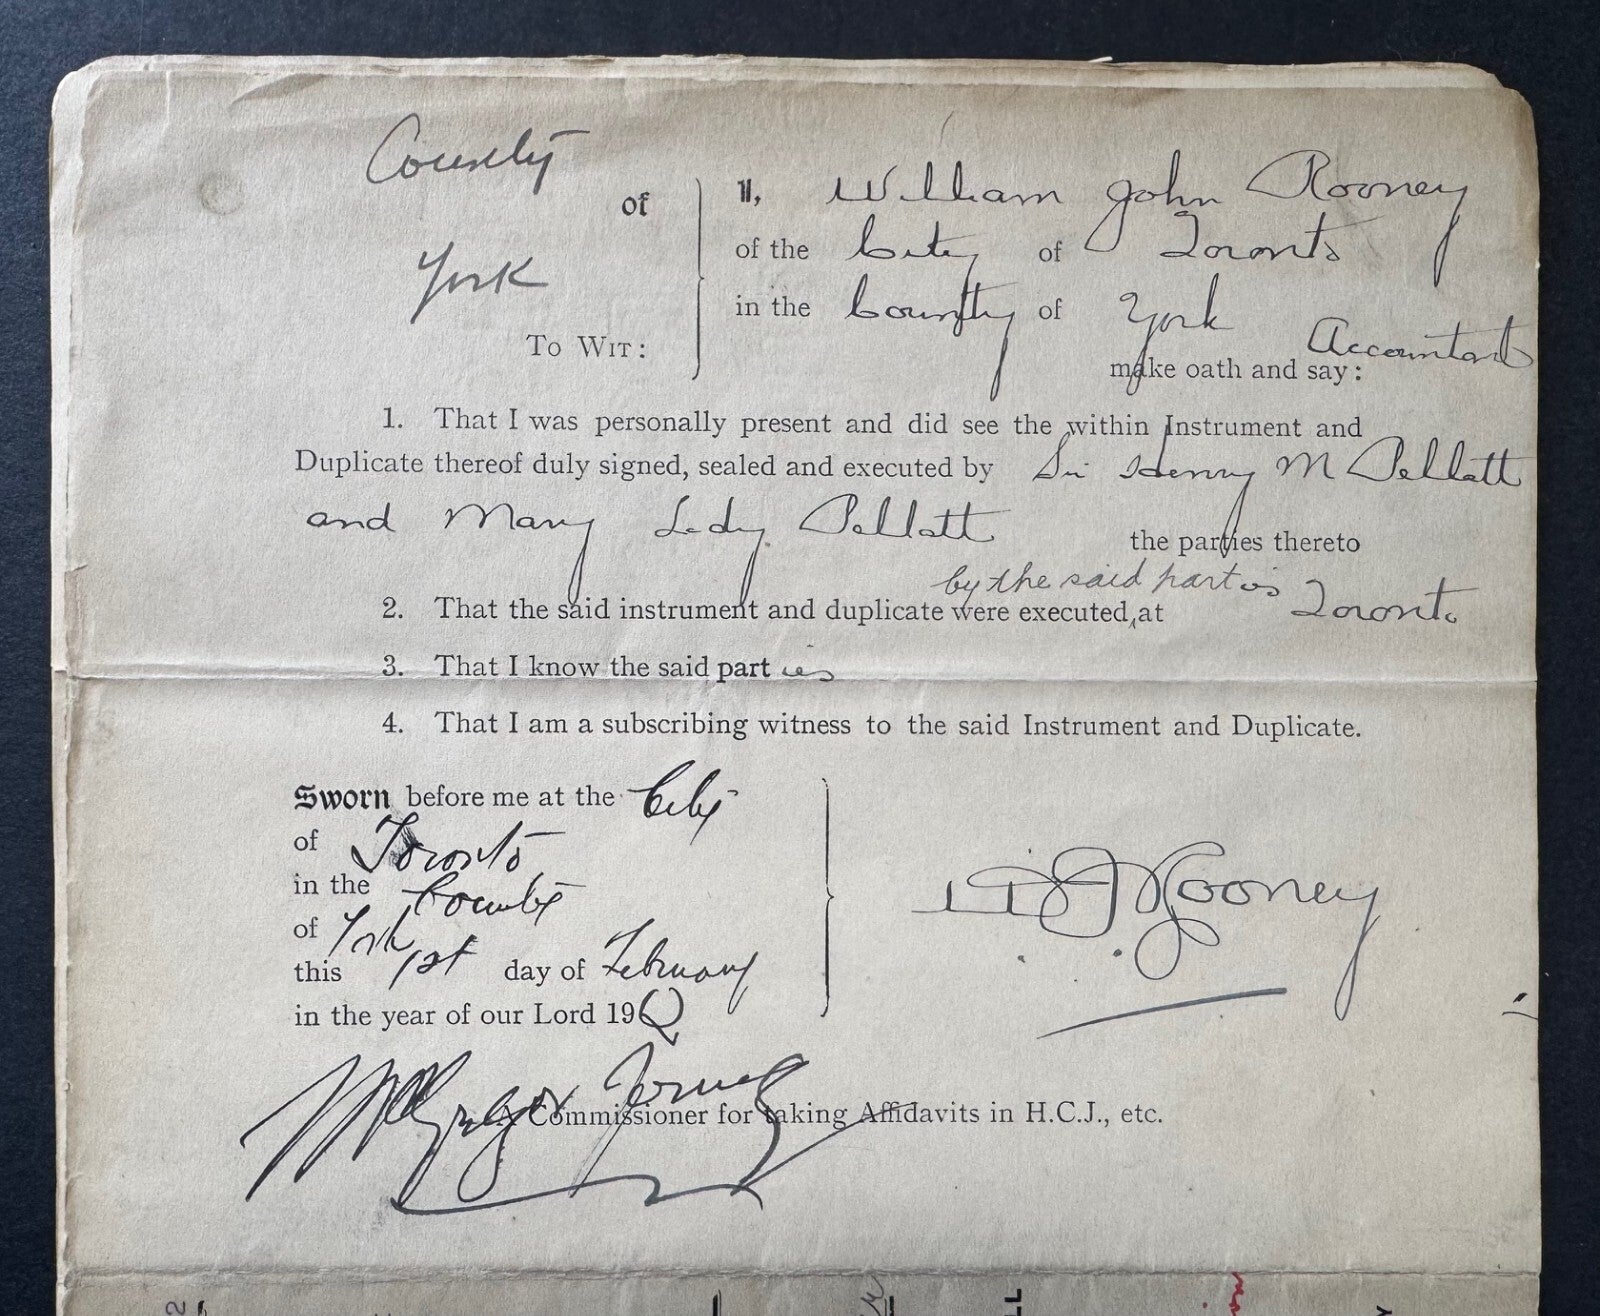 County
of
York
To Wit:
I, William John Rooney
of the City of Toronto
in the County of York Accountant
make oath and say:
1. That I was personally present and did see the within Instrument and
Duplicate thereof duly signed, sealed and executed by Sir Henry M Pellatt
and Mary Lady Pellatt the parties thereto
by the said parties
2. That the said instrument and duplicate were executed at Toronto
3. That I know the said parties
4. That I am a subscribing witness to the said Instrument and Duplicate.
Sworn before me at the City
of Toronto
in the County
of York
this 1st day of February
in the year of our Lord 19
W J Rooney
McGregor Young
A Commissioner for taking Affidavits in H.C.J., etc.